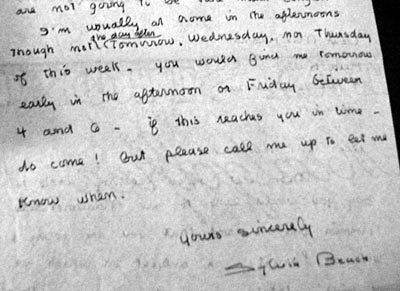 are not going to be
I'm usually at home in the afternoons
the day after
Though not (Tomorrow, Wednesday, nor Thursday
of this week - you would find me tomorrow
early in the afternoon or Friday between
4 and 6 - if this reaches you in time -
do come! But please call me up to let me
know when.
Yours sincerely
Sylvia Beach